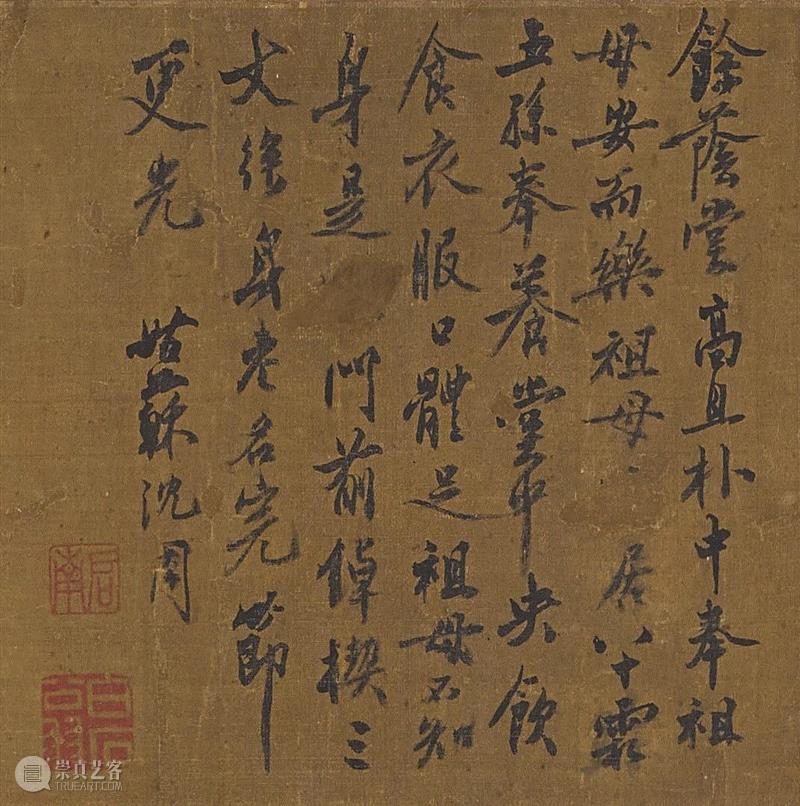 餘蔭堂高且朴中奉祖
母安而樂祖母居八十霜
五孫奉養堂中央飲
食衣服口體足祖母不知
身是門前綽楔三
丈強身老名完節
更光
姑蘇沈周
啓南
崇真艺客
TRUEART.COM